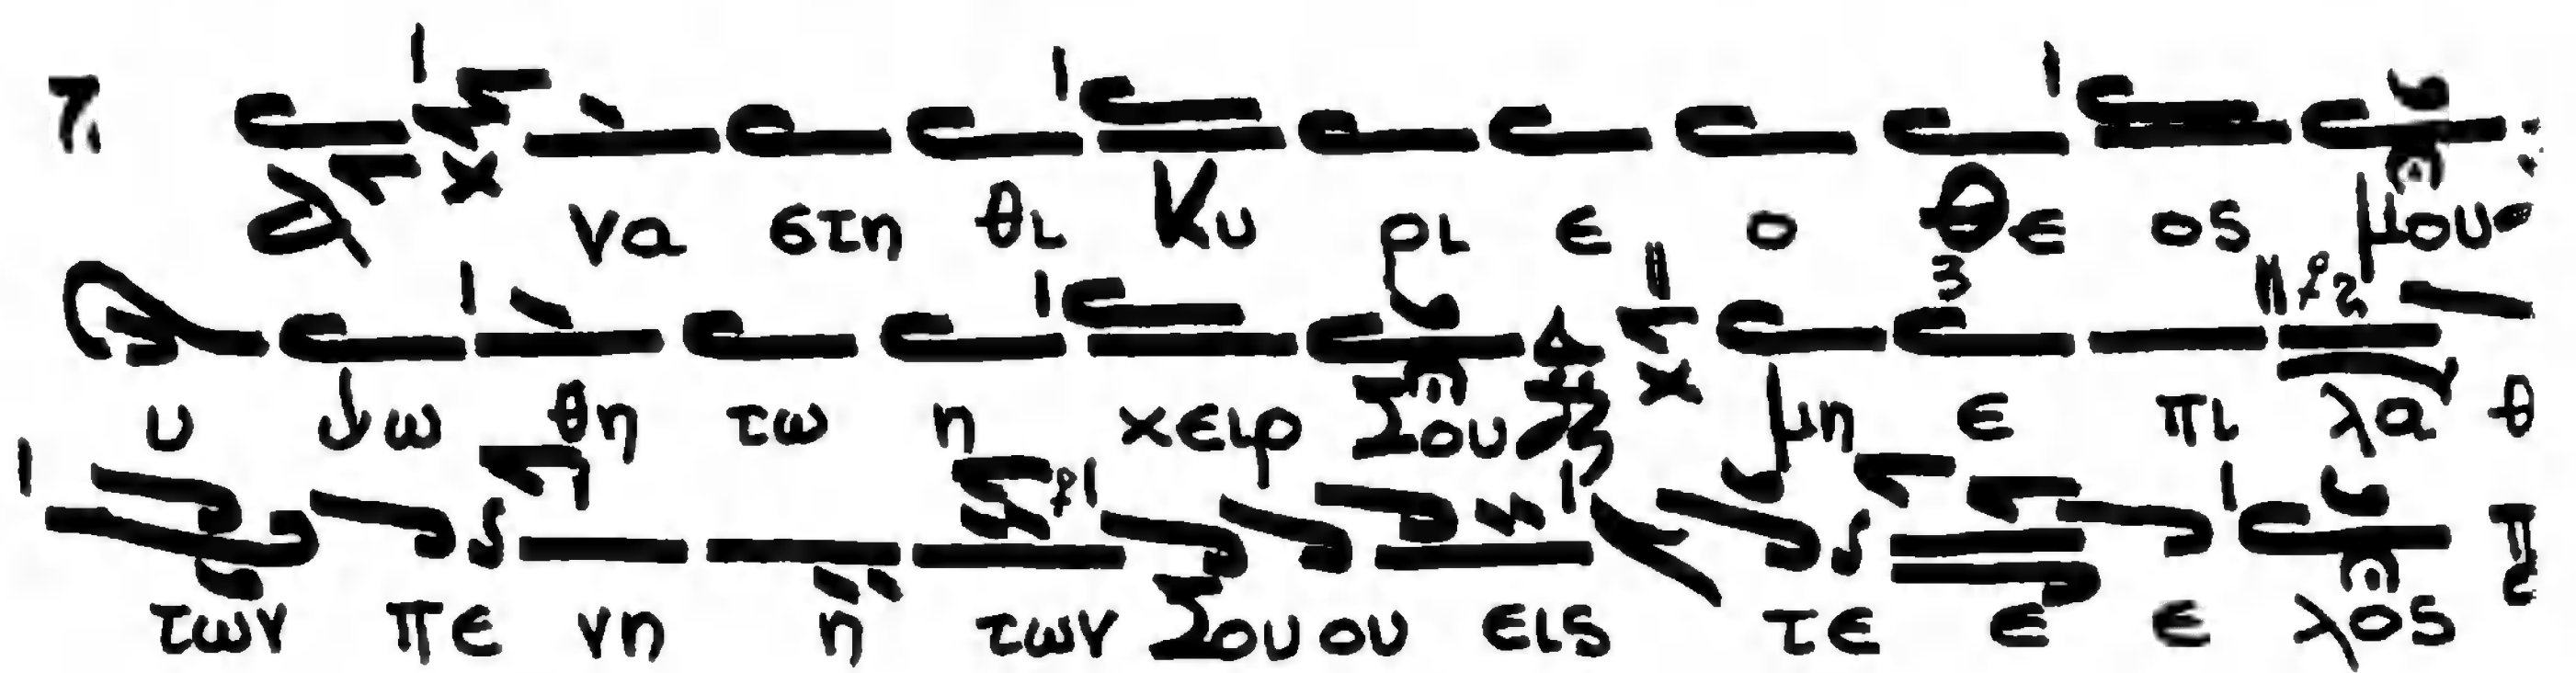 7. Α να στη θι Κυ ρι ε ο Θε ος μου
υ ψω θη τω η χειρ Σου μη ε πι λα θ
των πε νη η των Σου ου εις τε ε ε λος